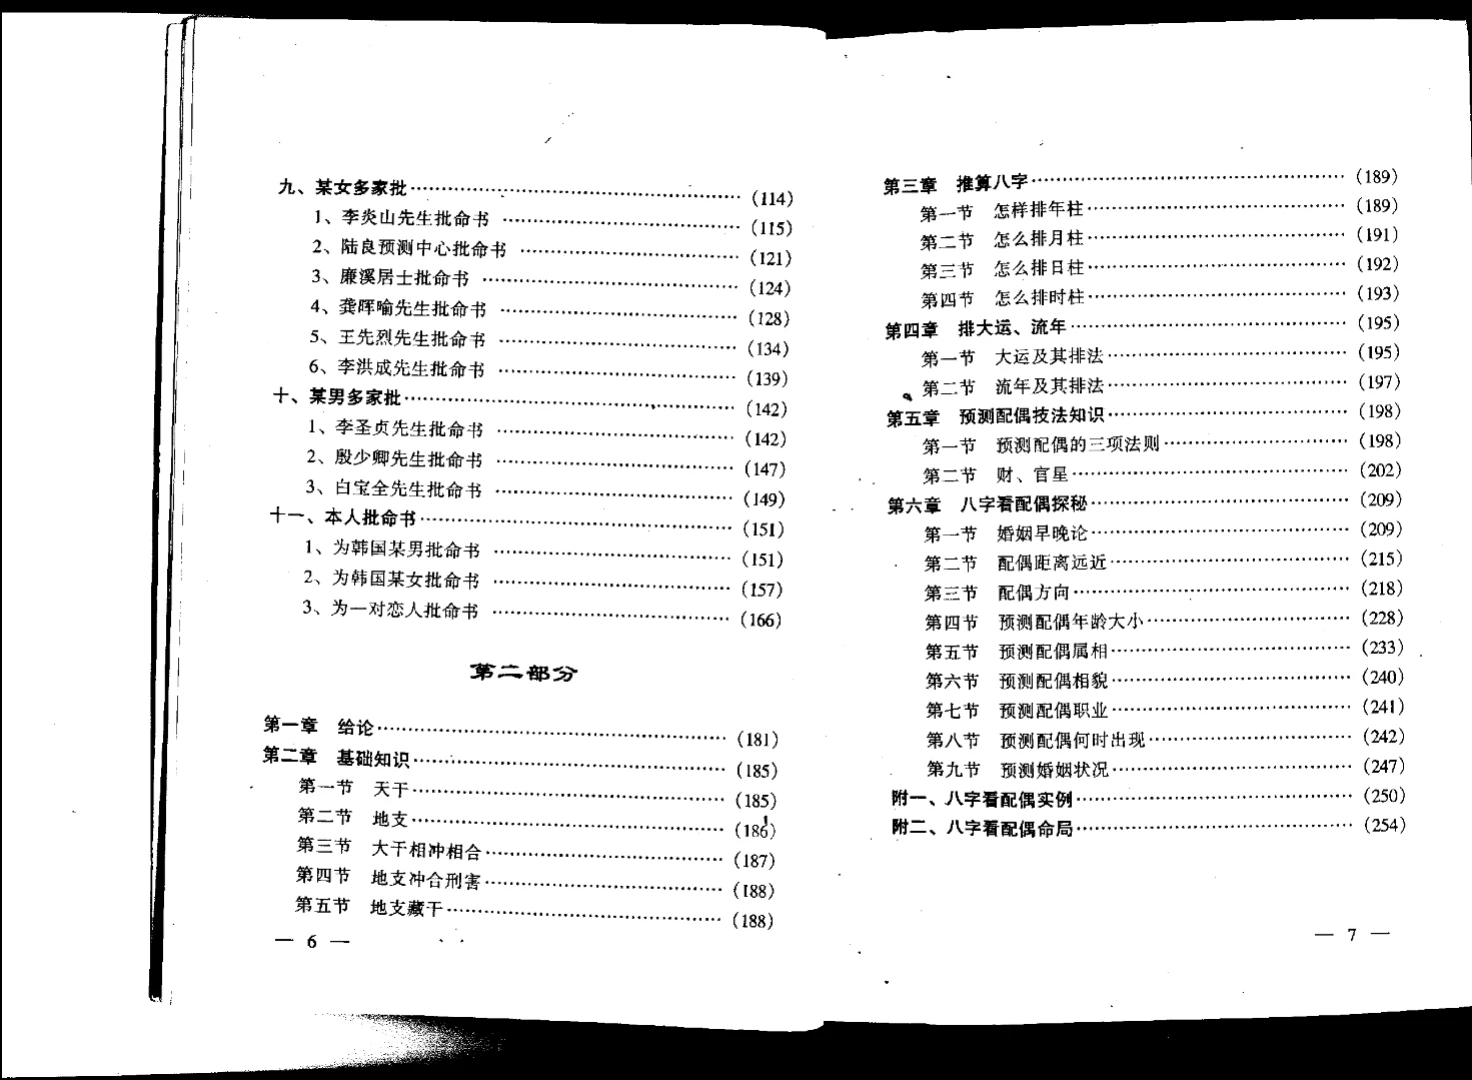 九、某女多家批……(114)
1、李炎山先生批命书……(115)
2、陆良预测中心批命书……(121)
3、廉溪居士批命书……(124)
4、龚晖喻先生批命书……(128)
5、王先烈先生批命书……(134)
6、李洪成先生批命书……(139)
十、某男多家批……(142)
1、李圣贞先生批命书……(142)
2、殷少卿先生批命书……(147)
3、白宝全先生批命书……(149)
十一、本人批命书……(151)
1、为韩国某男批命书……(151)
2、为韩国某女批命书……(157)
3、为一对恋人批命书……(166)
第二部分
第一章 给论……(181)
第二章 基础知识……(185)
第一节 天干……(185)
第二节 地支……(186)
第三节 大干相冲相合……(187)
第四节 地支冲合刑害……(188)
第五节 地支藏干……(188)
— 6 —
第三章 推算八字……(189)
第一节 怎样排年柱……(189)
第二节 怎么排月柱……(191)
第三节 怎么排日柱……(192)
第四节 怎么排时柱……(193)
第四章 排大运、流年……(195)
第一节 大运及其排法……(195)
第二节 流年及其排法……(197)
第五章 预测配偶技法知识……(198)
第一节 预测配偶的三项法则……(198)
第二节 财、官星……(202)
第六章 八字看配偶探秘……(209)
第一节 婚姻早晚论……(209)
第二节 配偶距离远近……(215)
第三节 配偶方向……(218)
第四节 预测配偶年龄大小……(228)
第五节 预测配偶属相……(233)
第六节 预测配偶相貌……(240)
第七节 预测配偶职业……(241)
第八节 预测配偶何时出现……(242)
第九节 预测婚姻状况……(247)
附一、八字看配偶实例……(250)
附二、八字看配偶命局……(254)
— 7 —